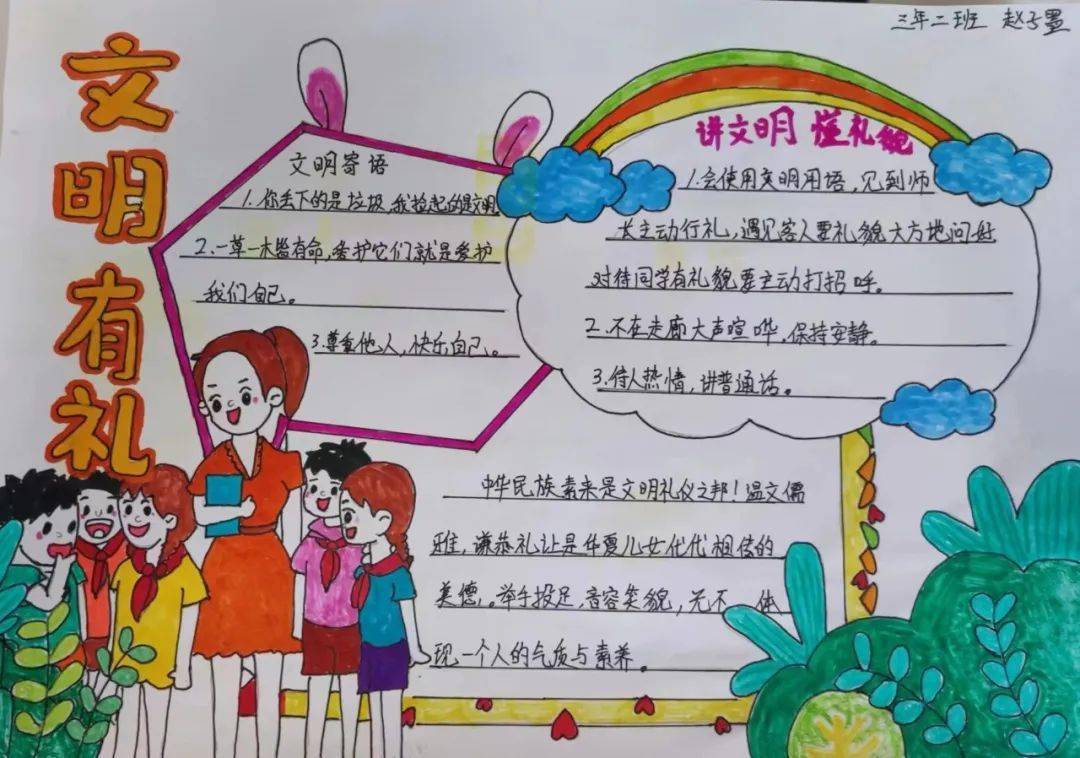 三年二班 赵子墨
文明有礼
文明寄语
1.你丢下的是垃圾,我捡起的是文明
2.一草一木皆有命,爱护它们就是爱护
我们自己。
3.尊重他人,快乐自己。
讲文明 懂礼貌
1.会使用文明用语,见到师
长主动行礼,遇见客人要礼貌大方地问好
对待同学有礼貌要主动打招呼。
2.不在走廊大声喧哗,保持安静。
3.待人热情,讲普通话。
中华民族素来是文明礼仪之邦!温文儒
雅,谦恭礼让是华夏儿女代代相传的
美德。举手投足,音容笑貌,无不 体
现一个人的气质与素养。